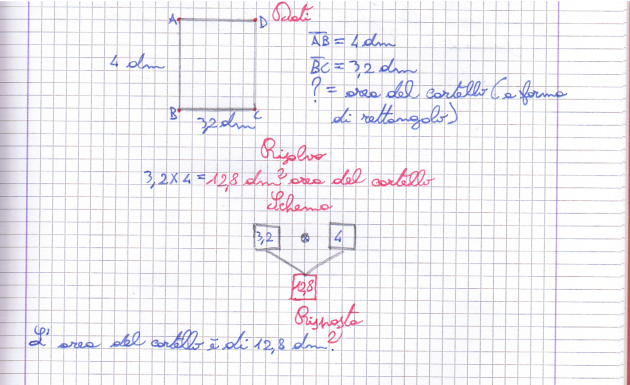 A D Dati
AB = 4 dm
4 dm BC = 3,2 dm
? = area del cartello (a forma
B C di rettangolo)
3,2 dm
Risolvo
3,2 x 4 = 12,8 dm² area del cartello
Schema
3,2 × 4
12,8
Risposta
L'area del cartello è di 12,8 dm².